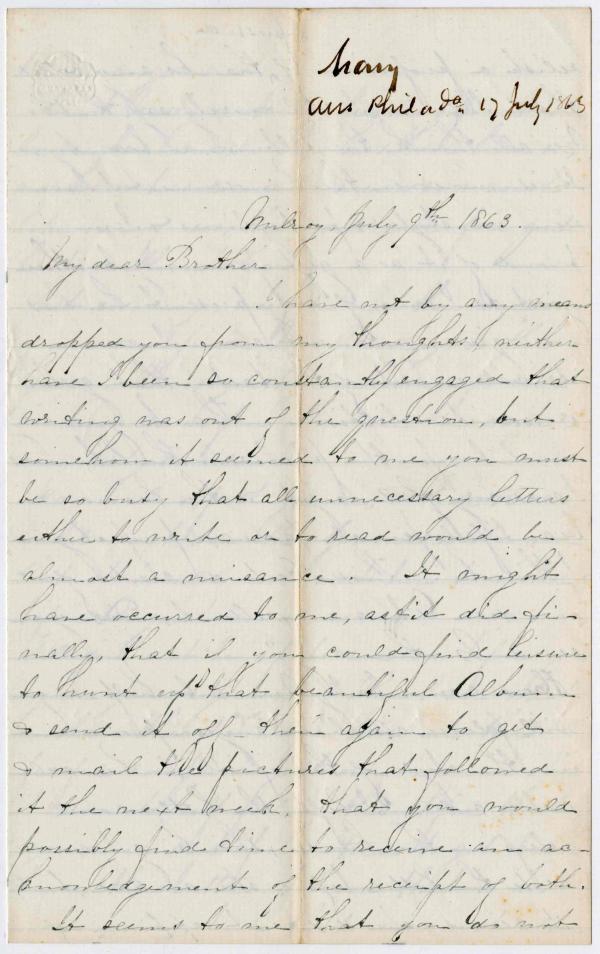 Mary
Ans Philada 17 July 1863
Milroy, July 9th 1863.
My dear Brother
I have not by any means
dropped you from my thoughts, neither
have I been so constantly engaged that
writing was out of the question, but
somehow it seemed to me you must
be so busy that all unnecessary letters
either to write or to read would be
almost a nuisance. It might
have occurred to me, as it did fi-
nally, that if you could find leisure
to hunt up that beautiful Album
& send it off, then again to get
& mail the pictures that followed
it the next week, that you would
possibly find time to receive an ac-
knowledgement of the receipt of both.
It seems to me that you do not